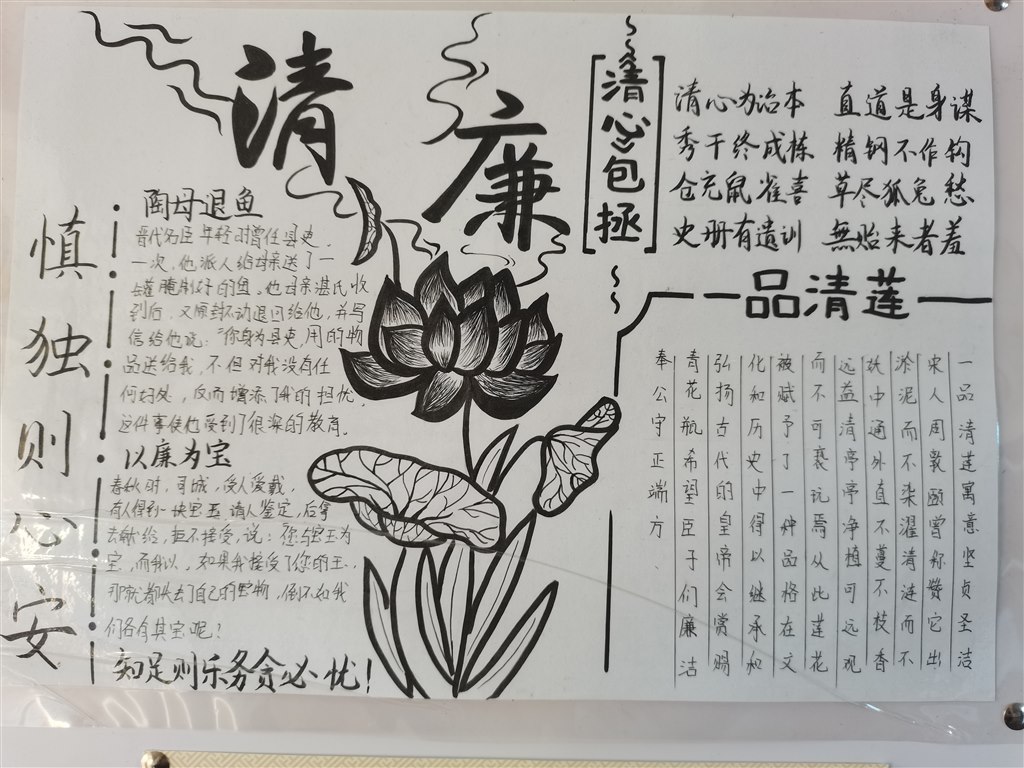 清
廉
慎独则心安
陶母退鱼
晋代名臣年轻时曾任县吏.
一次,他派人给母亲送了一
罐腌制好的鱼.他母亲湛氏收
到后.又原封不动退回给他,并写
信给他说:“你身为县吏,用的物
品送给我,不但对我没有任
何好处,反而增添了我的担忧
这件事使他受到了很深的教育.
以廉为宝
春秋时,司城,受人爱戴,
有人得到一块宝玉请人鉴定,后拿
去献给,拒不接受,说:您以宝玉为
宝,而我以,如果我接受了您的玉.
那我们都失去了自己的宝物,倒不如我
们各有其宝呢?
知足则乐务贪必忧!
清心包拯
清心为治本 直道是身谋
秀干终成栋 精钢不作钩
仓充鼠雀喜 草尽狐兔愁
史册有遗训 無贻来者羞
一品清莲
一品清莲寓意坚贞圣洁
宋人周敦颐曾称赞它出
淤泥而不染濯清涟而不
妖中通外直不蔓不枝香
远益清亭亭净植可远观
而不可亵玩焉从此莲花
被赋予了一种品格在文
化和历史中得以继承和
弘扬古代的皇帝会赏赐
青花瓶希望臣子们廉洁
奉公守正端方.